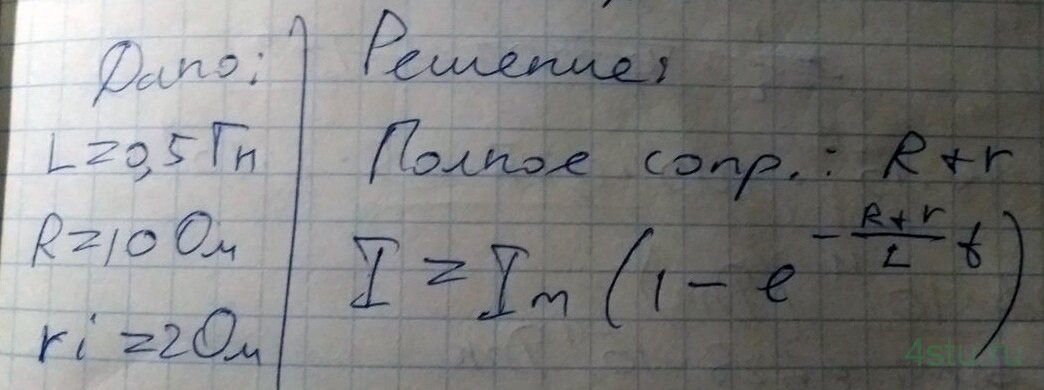 Дано:
L=0,5 Гн
R=10 Ом
ri=2 Ом
Решение:
Полное сопр.: R+r
I = Iₘ (1 - e^(-(R+r)/L t))
4stu.ru